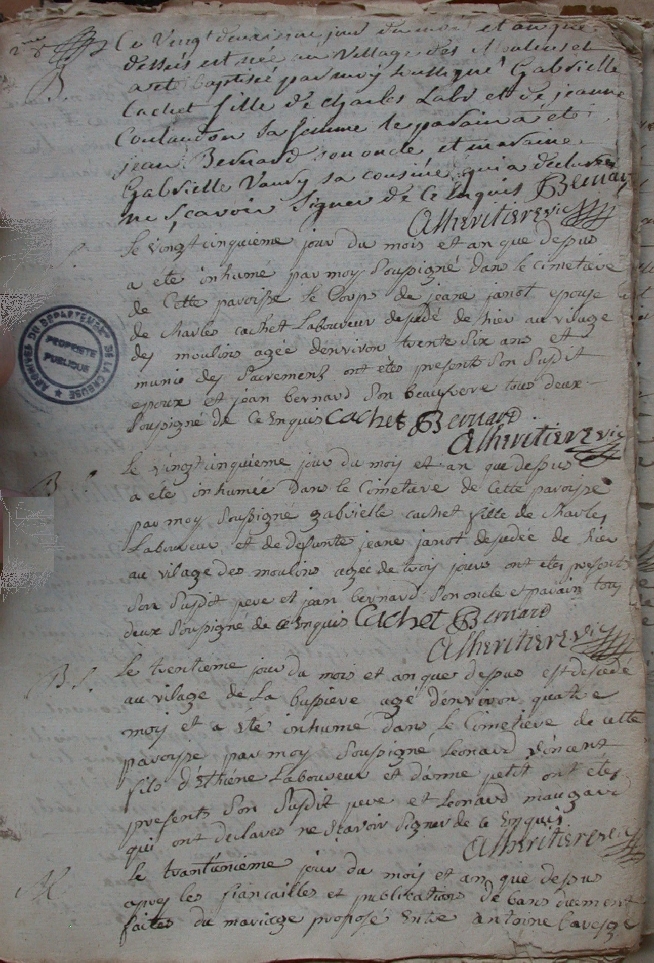 Le Vingt deuxieme jour du mois et an que
dessus est née au Village des Moulins et
a eté Baptisée par moy soussigné Gabrielle
Cachet fille de Charles Labr et de jeanne
sa femme le parain a eté
jean Bernard son oncle et maraine
Gabrielle Vaury sa cousine qui a declaré
ne sçavoir signer de ce Enquis Bernard
Alheritier vic
le vingtcinquieme jour du mois et an que depus
a eté inhumé par moy Souspigné dans le Cimetaire
de Cette paroisse le Corps de jeane janot epouse
de Charles cachet Laboureur desedé de hier au village
des moulins agée denviron trente Six ans et
munie des Sacrements ont etés presents Son Susdit
epoux et jean bernard Son beaufrere tous deux
Souspigné de Ce Enquis Cachet Bernard
Alheritier vic
le vingtcinquieme jour du mois et an que depus
a eté inhumée dans le Cimetaire de Cette paroisse
par moy Souspigne gabrielle cachet fille de Charles
Laboureur et de defunte jeane janot desedée de hier
au vilage des moulins agée de trois jours ont etes presents
Son Susdit pere et jean bernard Son oncle et parain tous
deux Souspigné de ce Enquis Cachet Bernard
Alheritier vic
B. S. le trentieme jour du mois et an que depus est desedé
au vilage de La bussiere agé denviron quatre
moys et a eté inhumé dans le Cimetiere de cette
paroisse par moy Souspigné Leonard vincent
fils d'Ethiene Laboureur et danne petit ont etes
presents Son Susdit pere et Leonard maugard
qui ont declares ne Scavoir Signer de ce Enquis
Alheritier vic
M le trantunieme jour du mois et an que depus
apres les fiancailles et publications de bans duement
faites du mariage proposé Entre antoine
ARCHIVES DU DEPARTEMENT DE LA CREUSE
PROPRIETE
PUBLIQUE